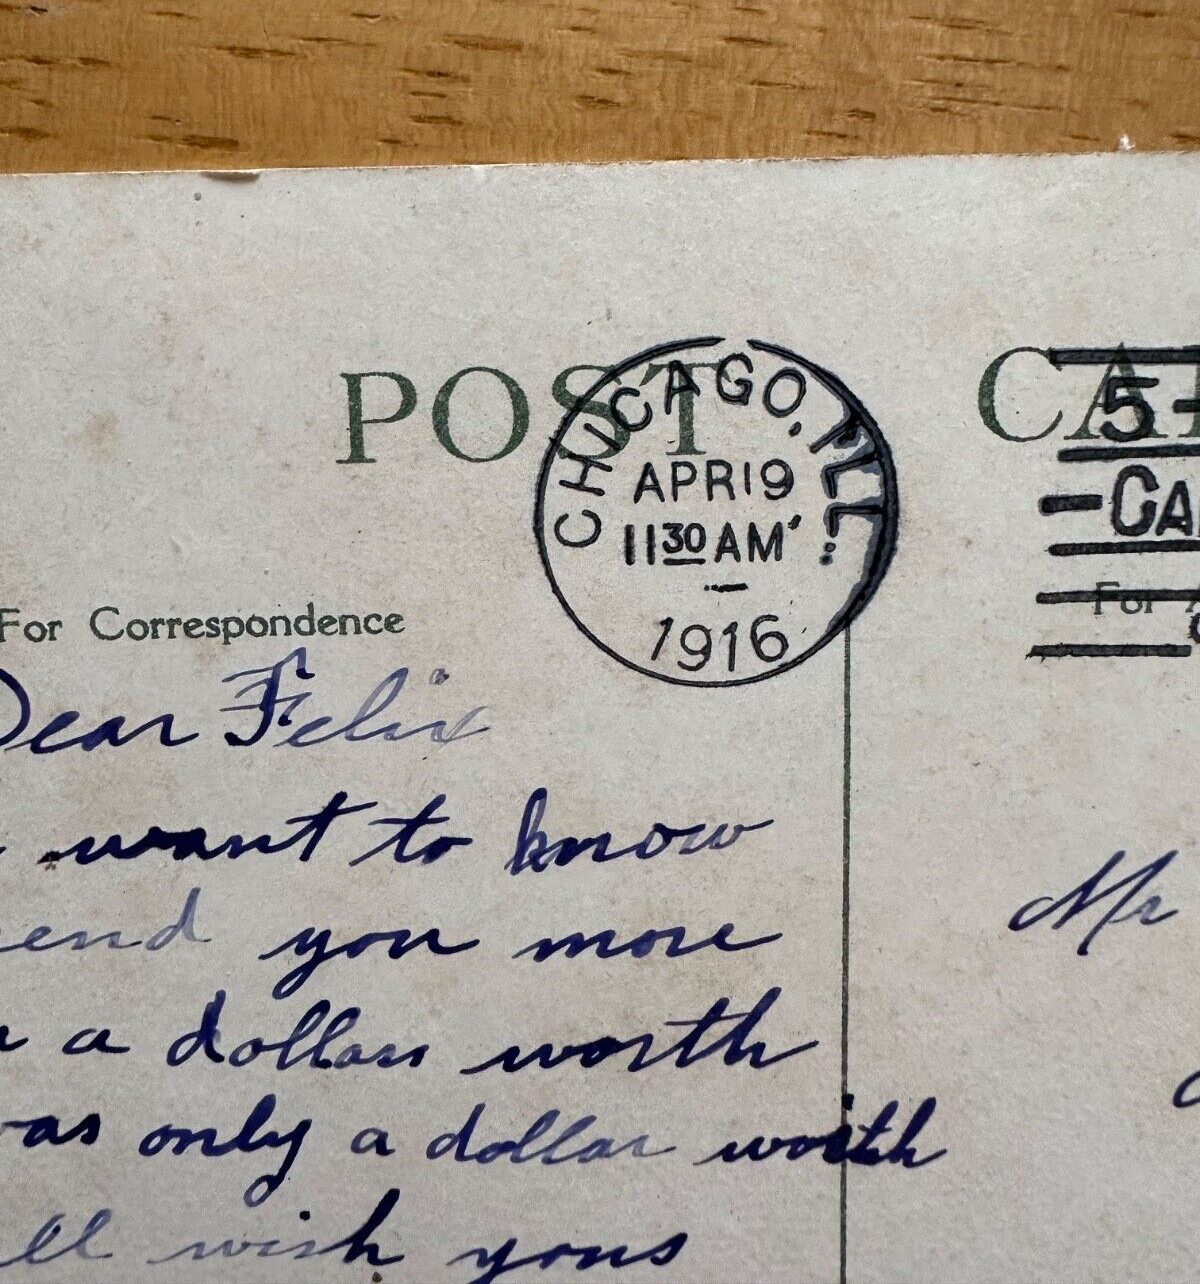 POST CA
CHICAGO, ILL.
APR 19
11 30 AM
1916
5-
-CA
For Correspondence
For
Dear Felix
want to know
Mr
end you more
a dollars worth
as only a dollar worth
ll wish yous